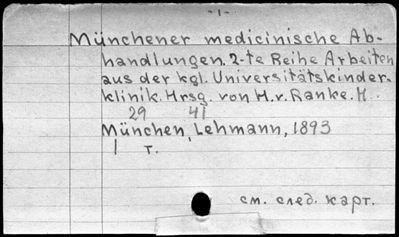 - 1 -
Münchener medicinische Ab-
handlungen. 2-te Reihe Arbeiten
aus der kgl. Universitätskinder-
klinik. Hrsg. von H.v. Ranke. H..
29 41
München, Lehmann, 1893
1 т.
см. след. карт.